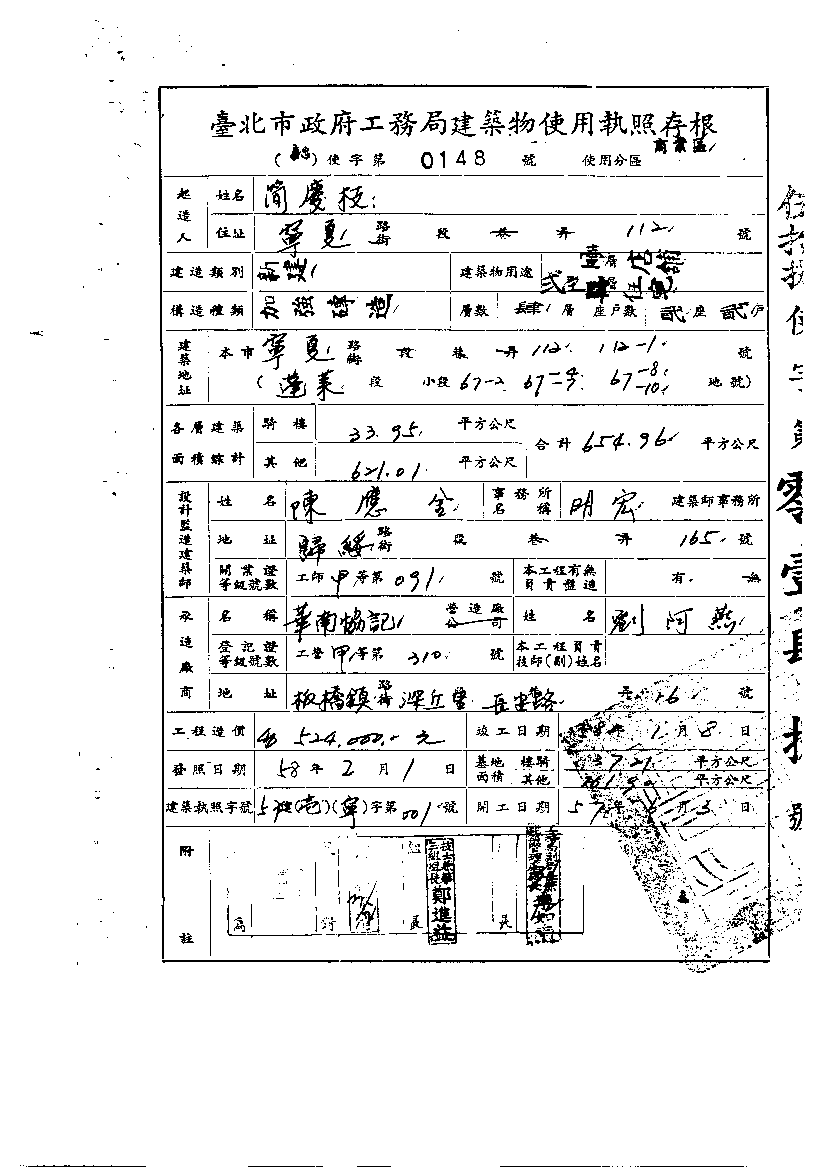 臺北市政府工務局建築物使用執照存根
使字第 0148 號 使用分區 商業區
起造人 姓名 簡慶枝
住址 寧夏 路街 段 巷 弄 112 號
建造類別 新建 建築物用途 壹層店舖 貳至肆層住宅
構造種類 加強磚造 層數 肆層 座戶數 貳座 貳戶
建築地址 本市 寧夏 路街 段 巷 弄 112. 112-1 號
(蓬萊 段 小段 67-2 67-4 67-8 67-10 地號)
各層建築面積綜計 騎樓 33.95 平方公尺 合計 654.96 平方公尺
其他 621.01 平方公尺
設計監造建築師 姓名 陳應全 事務所名稱 明宏 建築師事務所
地址 歸綏 路街 段 巷 弄 165 號
開業證等級號數 工師甲等第 091 號 本工程有無負責監造 有 無
承造廠商 名稱 華南協記 營造廠公司 姓名 劉阿燕
登記證等級號數 工營甲等第 310 號 本工程負責技師(副)姓名
地址 板橋鎮 路街 深丘里 長安路 16 號
工程造價 524,000.- 元 竣工日期 58年1月8日
發照日期 58年2月1日 基地面積 騎樓 平方公尺
其他 平方公尺
建築執照字號 57建(壱)(寧)字第001號 開工日期 57年6月3日
附註
鄭進益
使字第零壹
號